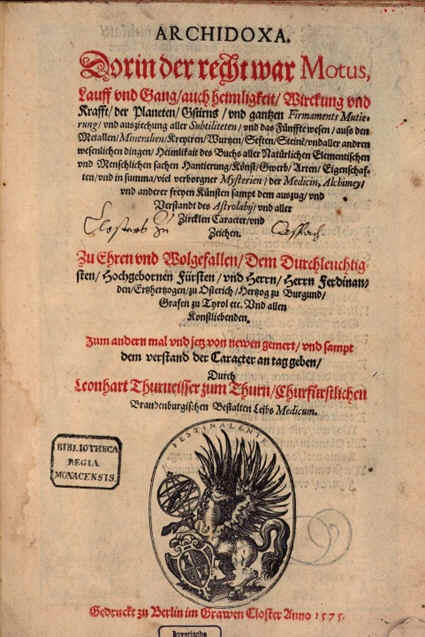 ARCHIDOXA.
Dorin der recht war Motus,
Lauff vnd Gang/auch heimligkeit/ Wirckung vnd
Krafft/ der Planeten/ Gstirns/ vnd gantzen Firmaments Mutie-
rung/ vnd ausziehung aller Subtiliteten/ vnd das Fünffte wesen/ auss den
Metallen/ Mineralien/ Kreyttern/ Wurtzen/ Seften/ Steinē/ vnd aller andren
wesenlichen dingen/ Heimlikait des Buchs aller Natürlichen Elementischen
vnd Menschlichen sachen Hantierung/ Künst/ Gwerb/ Arten/ Eigenschaf-
ten/ vnd in summa/ viel verborgner Mysterien/ der Medicin, Alchimey/
vnd anderer freyen Künsten sampt dem auszug/ vnd
Verstandt des Astrolabij/ vnd aller
Zircklen Caracter/ vnd
Zeichen.
Closters Zu
Zu Ehren vnd Wolgefallen/ Dem Durchleuchtig-
sten/ Hochgebornen Fürsten/ vnd Herrn/ Herrn Ferdinan-
den/ Ertzhertzogen/ zu Osterich/ Hertzog zu Burgund/
Grafen zu Tyrol etc. Vnd allen
Konstliebenden.
Zum andern mal vnd jetz von newen gemert/ vnd sampt
dem verstand der Caracter an tag geben/
Durch
Leonhart Thurneisser zum Thurn/ Churfürstlichen
Brandenburgischen Bestalten Leibs Medicum.
FESTINA LENTE
BIBLIOTHECA
REGIA
MONACENSIS.
Gedruckt zu Berlin im Grawen Closter Anno 1575.
Bayerische